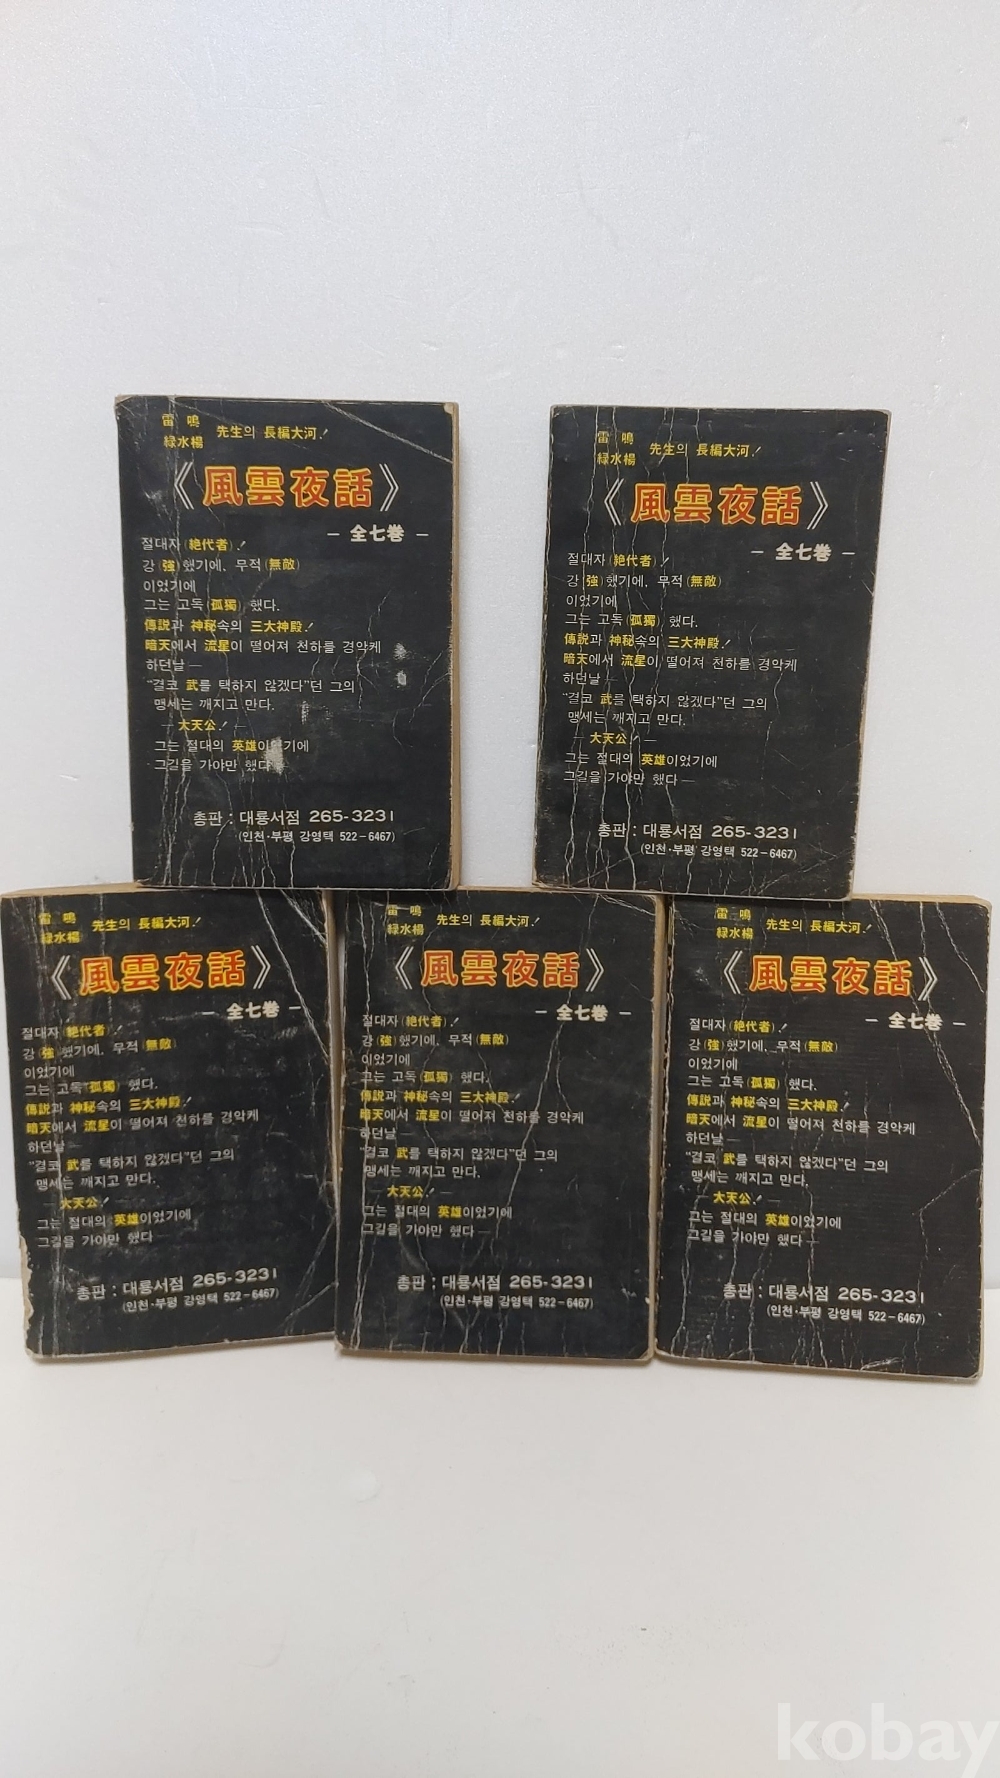 雷鳴
綠水楊 先生의 長編大河!
《風雲夜話》
— 全七巻 —
절대자(絶代者)!
강(強)했기에, 무적(無敵)
이었기에
그는 고독(孤獨)했다.
傳說과 神秘속의 三大神殿!
暗天에서 流星이 떨어져 천하를 경악케
하던날 —
“결코 武를 택하지 않겠다”던 그의
맹세는 깨지고 만다.
— 大天公! —
그는 절대의 英雄이었기에
그길을 가야만 했다 —
총판 : 대룡서점 265-3231
(인천·부평 강영택 522-6467)
雷鳴
綠水楊 先生의 長編大河!
《風雲夜話》
— 全七巻 —
절대자(絶代者)!
강(強)했기에, 무적(無敵)
이었기에
그는 고독(孤獨)했다.
傳說과 神秘속의 三大神殿!
暗天에서 流星이 떨어져 천하를 경악케
하던날 —
“결코 武를 택하지 않겠다”던 그의
맹세는 깨지고 만다.
— 大天公! —
그는 절대의 英雄이었기에
그길을 가야만 했다 —
총판 : 대룡서점 265-3231
(인천·부평 강영택 522-6467)
雷鳴
綠水楊 先生의 長編大河!
《風雲夜話》
— 全七巻 —
절대자(絶代者)!
강(強)했기에, 무적(無敵)
이었기에
그는 고독(孤獨)했다.
傳說과 神秘속의 三大神殿!
暗天에서 流星이 떨어져 천하를 경악케
하던날 —
“결코 武를 택하지 않겠다”던 그의
맹세는 깨지고 만다.
— 大天公! —
그는 절대의 英雄이었기에
그길을 가야만 했다 —
총판 : 대룡서점 265-3231
(인천·부평 강영택 522-6467)
雷鳴
綠水楊 先生의 長編大河!
《風雲夜話》
— 全七巻 —
절대자(絶代者)!
강(強)했기에, 무적(無敵)
이었기에
그는 고독(孤獨)했다.
傳說과 神秘속의 三大神殿!
暗天에서 流星이 떨어져 천하를 경악케
하던날 —
“결코 武를 택하지 않겠다”던 그의
맹세는 깨지고 만다.
— 大天公! —
그는 절대의 英雄이었기에
그길을 가야만 했다 —
총판 : 대룡서점 265-3231
(인천·부평 강영택 522-6467)
雷鳴
綠水楊 先生의 長編大河!
《風雲夜話》
— 全七巻 —
절대자(絶代者)!
강(強)했기에, 무적(無敵)
이었기에
그는 고독(孤獨)했다.
傳說과 神秘속의 三大神殿!
暗天에서 流星이 떨어져 천하를 경악케
하던날 —
“결코 武를 택하지 않겠다”던 그의
맹세는 깨지고 만다.
— 大天公! —
그는 절대의 英雄이었기에
그길을 가야만 했다 —
총판 : 대룡서점 265-3231
(인천·부평 강영택 522-6467)
kobay